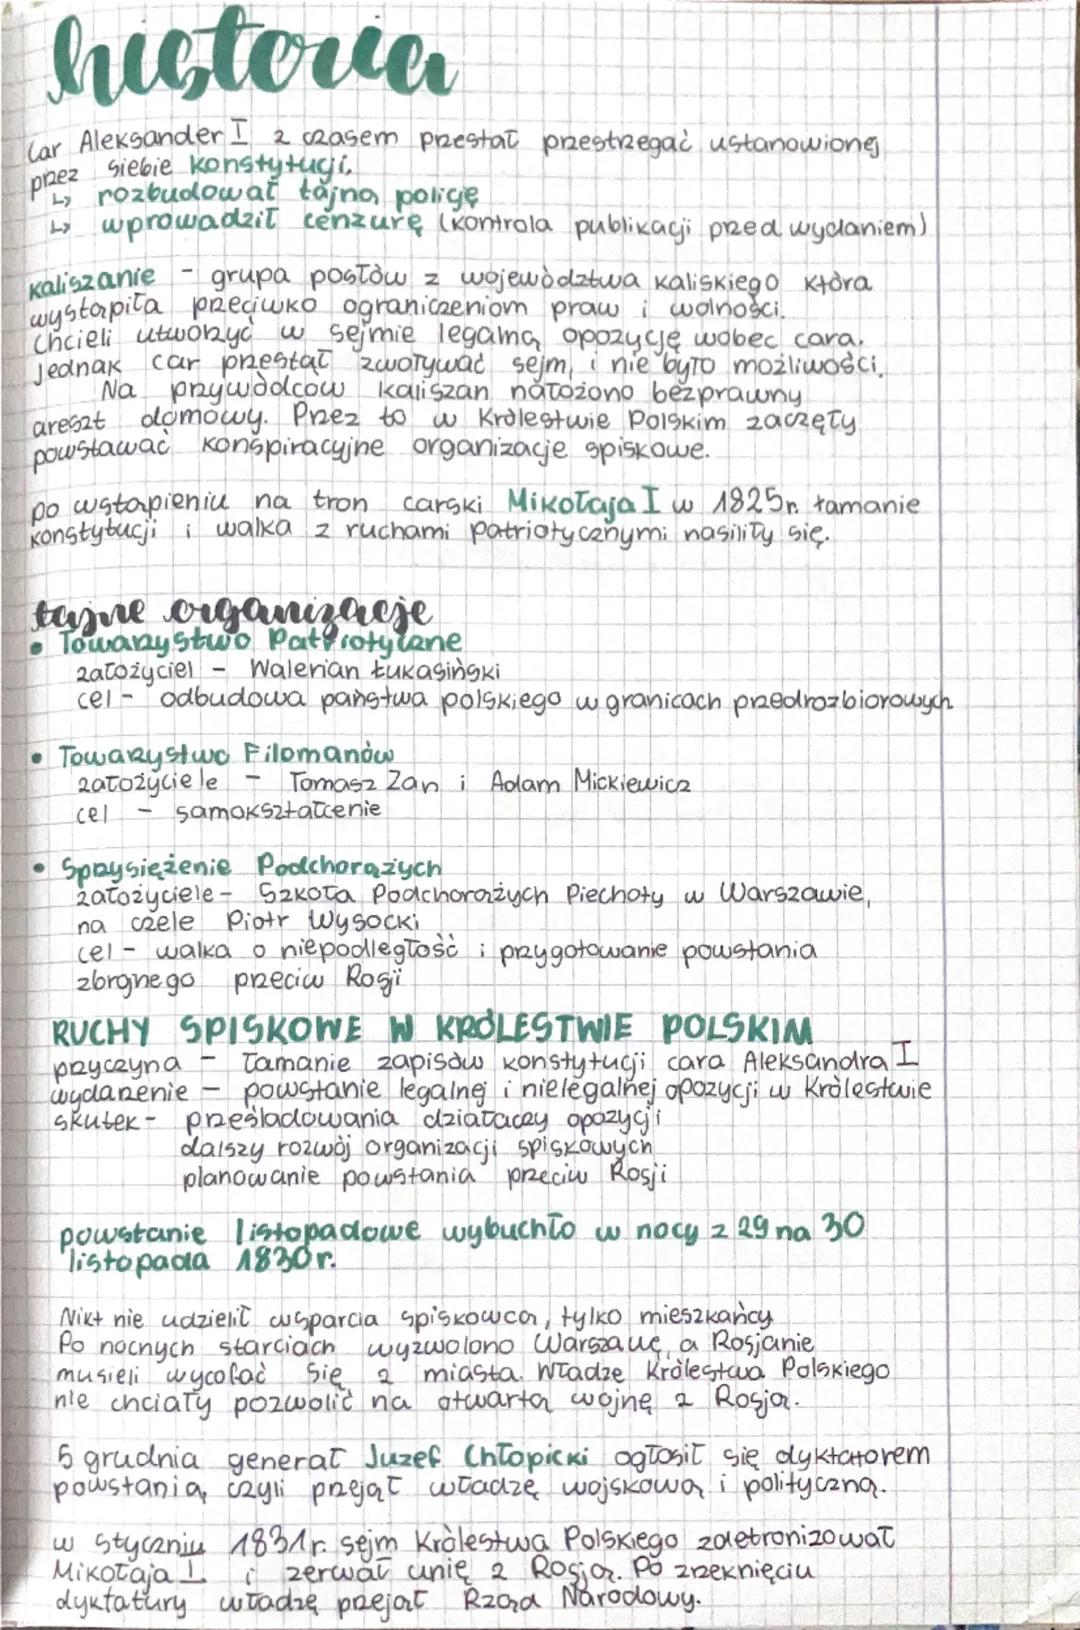 historia
Car Aleksander I z czasem przestał przestrzegać ustanowionej
przez siebie konstytucji.
↳ rozbudował tajną policję
↳ wprowadził cenzurę (kontrola publikacji przed wydaniem)
kaliszanie - grupa posłów z województwa kaliskiego która
wystąpiła przeciwko ograniczeniom praw i wolności.
Chcieli utworzyć w sejmie legalną opozycję wobec cara.
Jednak car przestał zwoływać sejm, i nie było możliwości.
Na przywódców kaliszan nałożono bezprawny
areszt domowy. Przez to w Królestwie Polskim zaczęły
powstawać konspiracyjne organizacje spiskowe.
po wstąpieniu na tron carski Mikołaja I w 1825r. łamanie
konstytucji i walka z ruchami patriotycznymi nasiliły się.
tajne organizacje
• Towarzystwo Patriotyczne
założyciel - Walerian Łukasiński
cel - odbudowa państwa polskiego w granicach przedrozbiorowych
• Towarzystwo Filomanów
założyciele - Tomasz Zan i Adam Mickiewicz
cel - samokształcenie
• Sprzysiężenie Podchorążych
założyciele - Szkoła Podchorążych Piechoty w Warszawie,
na czele Piotr Wysocki
cel - walka o niepodległość i przygotowanie powstania
zbrojnego przeciw Rosji
RUCHY SPISKOWE W KRÓLESTWIE POLSKIM
przyczyna - łamanie zapisów konstytucji cara Aleksandra I
wydarzenie - powstanie legalnej i nielegalnej opozycji w Królestwie
skutek - prześladowania działaczy opozycji
dalszy rozwój organizacji spiskowych
planowanie powstania przeciw Rosji
powstanie listopadowe wybuchło w nocy z 29 na 30
listopada 1830r.
Nikt nie udzielił wsparcia spiskowcą, tylko mieszkańcy
Po nocnych starciach wyzwolono Warszawę, a Rosjanie
musieli wycofać się z miasta. Władze Królestwa Polskiego
nie chciały pozwolić na otwartą wojnę z Rosją.
5 grudnia generał Juzef Chłopicki ogłosił się dyktatorem
powstania, czyli przejął władzę wojskową i polityczną.
w styczniu 1831r. sejm Królestwa Polskiego zdetronizował
Mikołaja I i zerwał unię z Rosją. Po zrzeknięciu
dyktatury władzę przejął Rząd Narodowy.